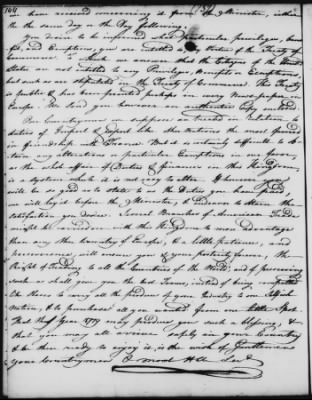 144 (132)
have received concerning it from the Minister, within
the same day or the Day following.
You desire to be informed what particular priviledges, bene-
fits, and Exemptions, you are intitled to by Virtue of the Treaty of
Commerce. To such an answer that the Citizens of the United
States are not intitled to any Priviledges, Benefits or Exemptions,
but such as are stipulated in the Treaty of Commerce. This Treaty
is publick & has been printed perhaps in every News paper in
Europe. We send you however an authentic Copy inclosed
Our Countrymen in suppose are treated in relation to
duties of Import & Export like other nations the most favored
in friendship with France. But it is certainly difficult to ob-
tain any alterations or particular Exemptions in our favor,
as the whole affair of Duties & finances in this Kingdom,
is a system which it is not easy to alter. Whenever you
will be so good as to state to us the Duties you have paid
we will lay it before the Minister, & endeavour to obtain the
satisfaction you desire. Several Branches of American Trade
might be carried on with this Kingdom to more advantage
than any other Country of Europe, & a little patience, and
perseverance will ensure you & your posterity forever, the
Right of Trading to all the Countries of the World; and of procuring
such as shall give you the best Terms, instead of being compelled
like slaves to carry all the produce of your Industry to one Selfish
Nation, & to purchase all you wanted from one little Spot.
That this Year 1779 may produce you such a blessing, &
that you may all arrive safely in your Country
to be then ready to enjoy it, is the wish of Gentlemen
your Countrymen & most Hble Servts